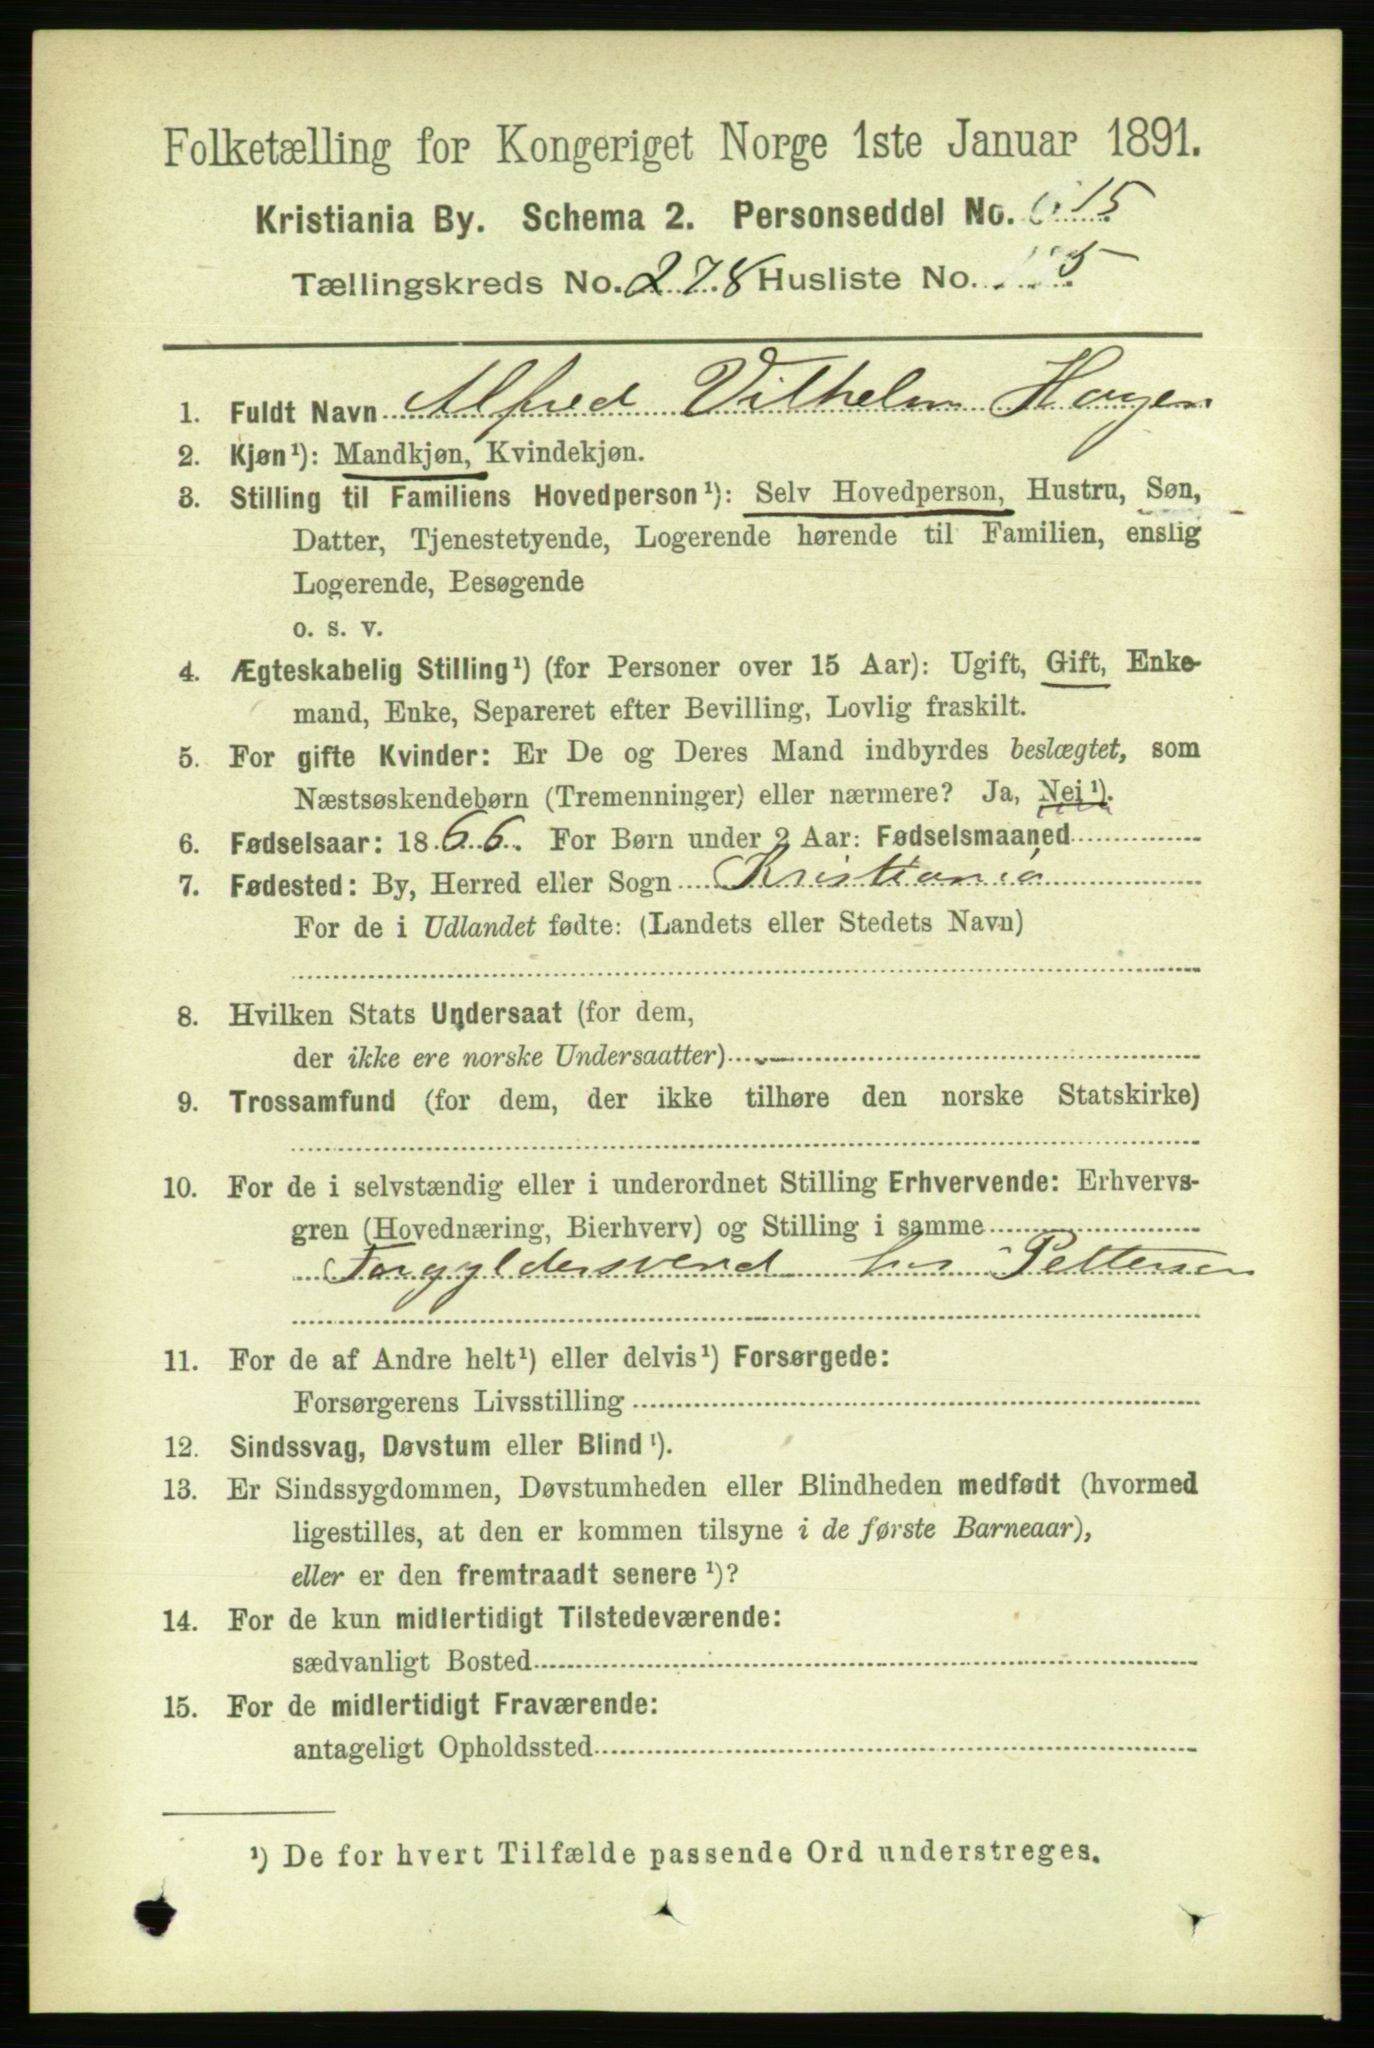 Folketælling for Kongeriget Norge 1ste Januar 1891.
Kristiania By. Schema 2. Personseddel No. 15
Tællingskreds No. 278 Husliste No. 5
1. Fuldt Navn Alfred Vilhelm Hagen
2. Kjøn¹): Mandkjøn, Kvindekjøn.
3. Stilling til Familiens Hovedperson¹): Selv Hovedperson, Hustru, Søn,
Datter, Tjenestetyende, Logerende hørende til Familien, enslig
Logerende, Besøgende
o. s. v.
4. Ægteskabelig Stilling¹) (for Personer over 15 Aar): Ugift, Gift, Enke-
mand, Enke, Separeret efter Bevilling, Lovlig fraskilt.
5. For gifte Kvinder: Er De og Deres Mand indbyrdes beslægtet, som
Næstsøskendebørn (Tremenninger) eller nærmere? Ja, Nei¹).
6. Fødselsaar: 1866. For Børn under 2 Aar: Fødselsmaaned
7. Fødested: By, Herred eller Sogn Kristiania
For de i Udlandet fødte: (Landets eller Stedets Navn)
8. Hvilken Stats Undersaat (for dem,
der ikke ere norske Undersaatter)
9. Trossamfund (for dem, der ikke tilhøre den norske Statskirke)
10. For de i selvstændig eller i underordnet Stilling Erhvervende: Erhvervs-
gren (Hovednæring, Bierhverv) og Stilling i samme
Forgyldersvend hos Pettersen
11. For de af Andre helt¹) eller delvis¹) Forsørgede:
Forsørgerens Livsstilling
12. Sindssvag, Døvstum eller Blind¹).
13. Er Sindssygdommen, Døvstumheden eller Blindheden medfødt (hvormed
ligestilles, at den er kommen tilsyne i de første Barneaar),
eller er den fremtraadt senere¹)?
14. For de kun midlertidigt Tilstedeværende:
sædvanligt Bosted
15. For de midlertidigt Fraværende:
antageligt Opholdssted
¹) De for hvert Tilfælde passende Ord understreges.